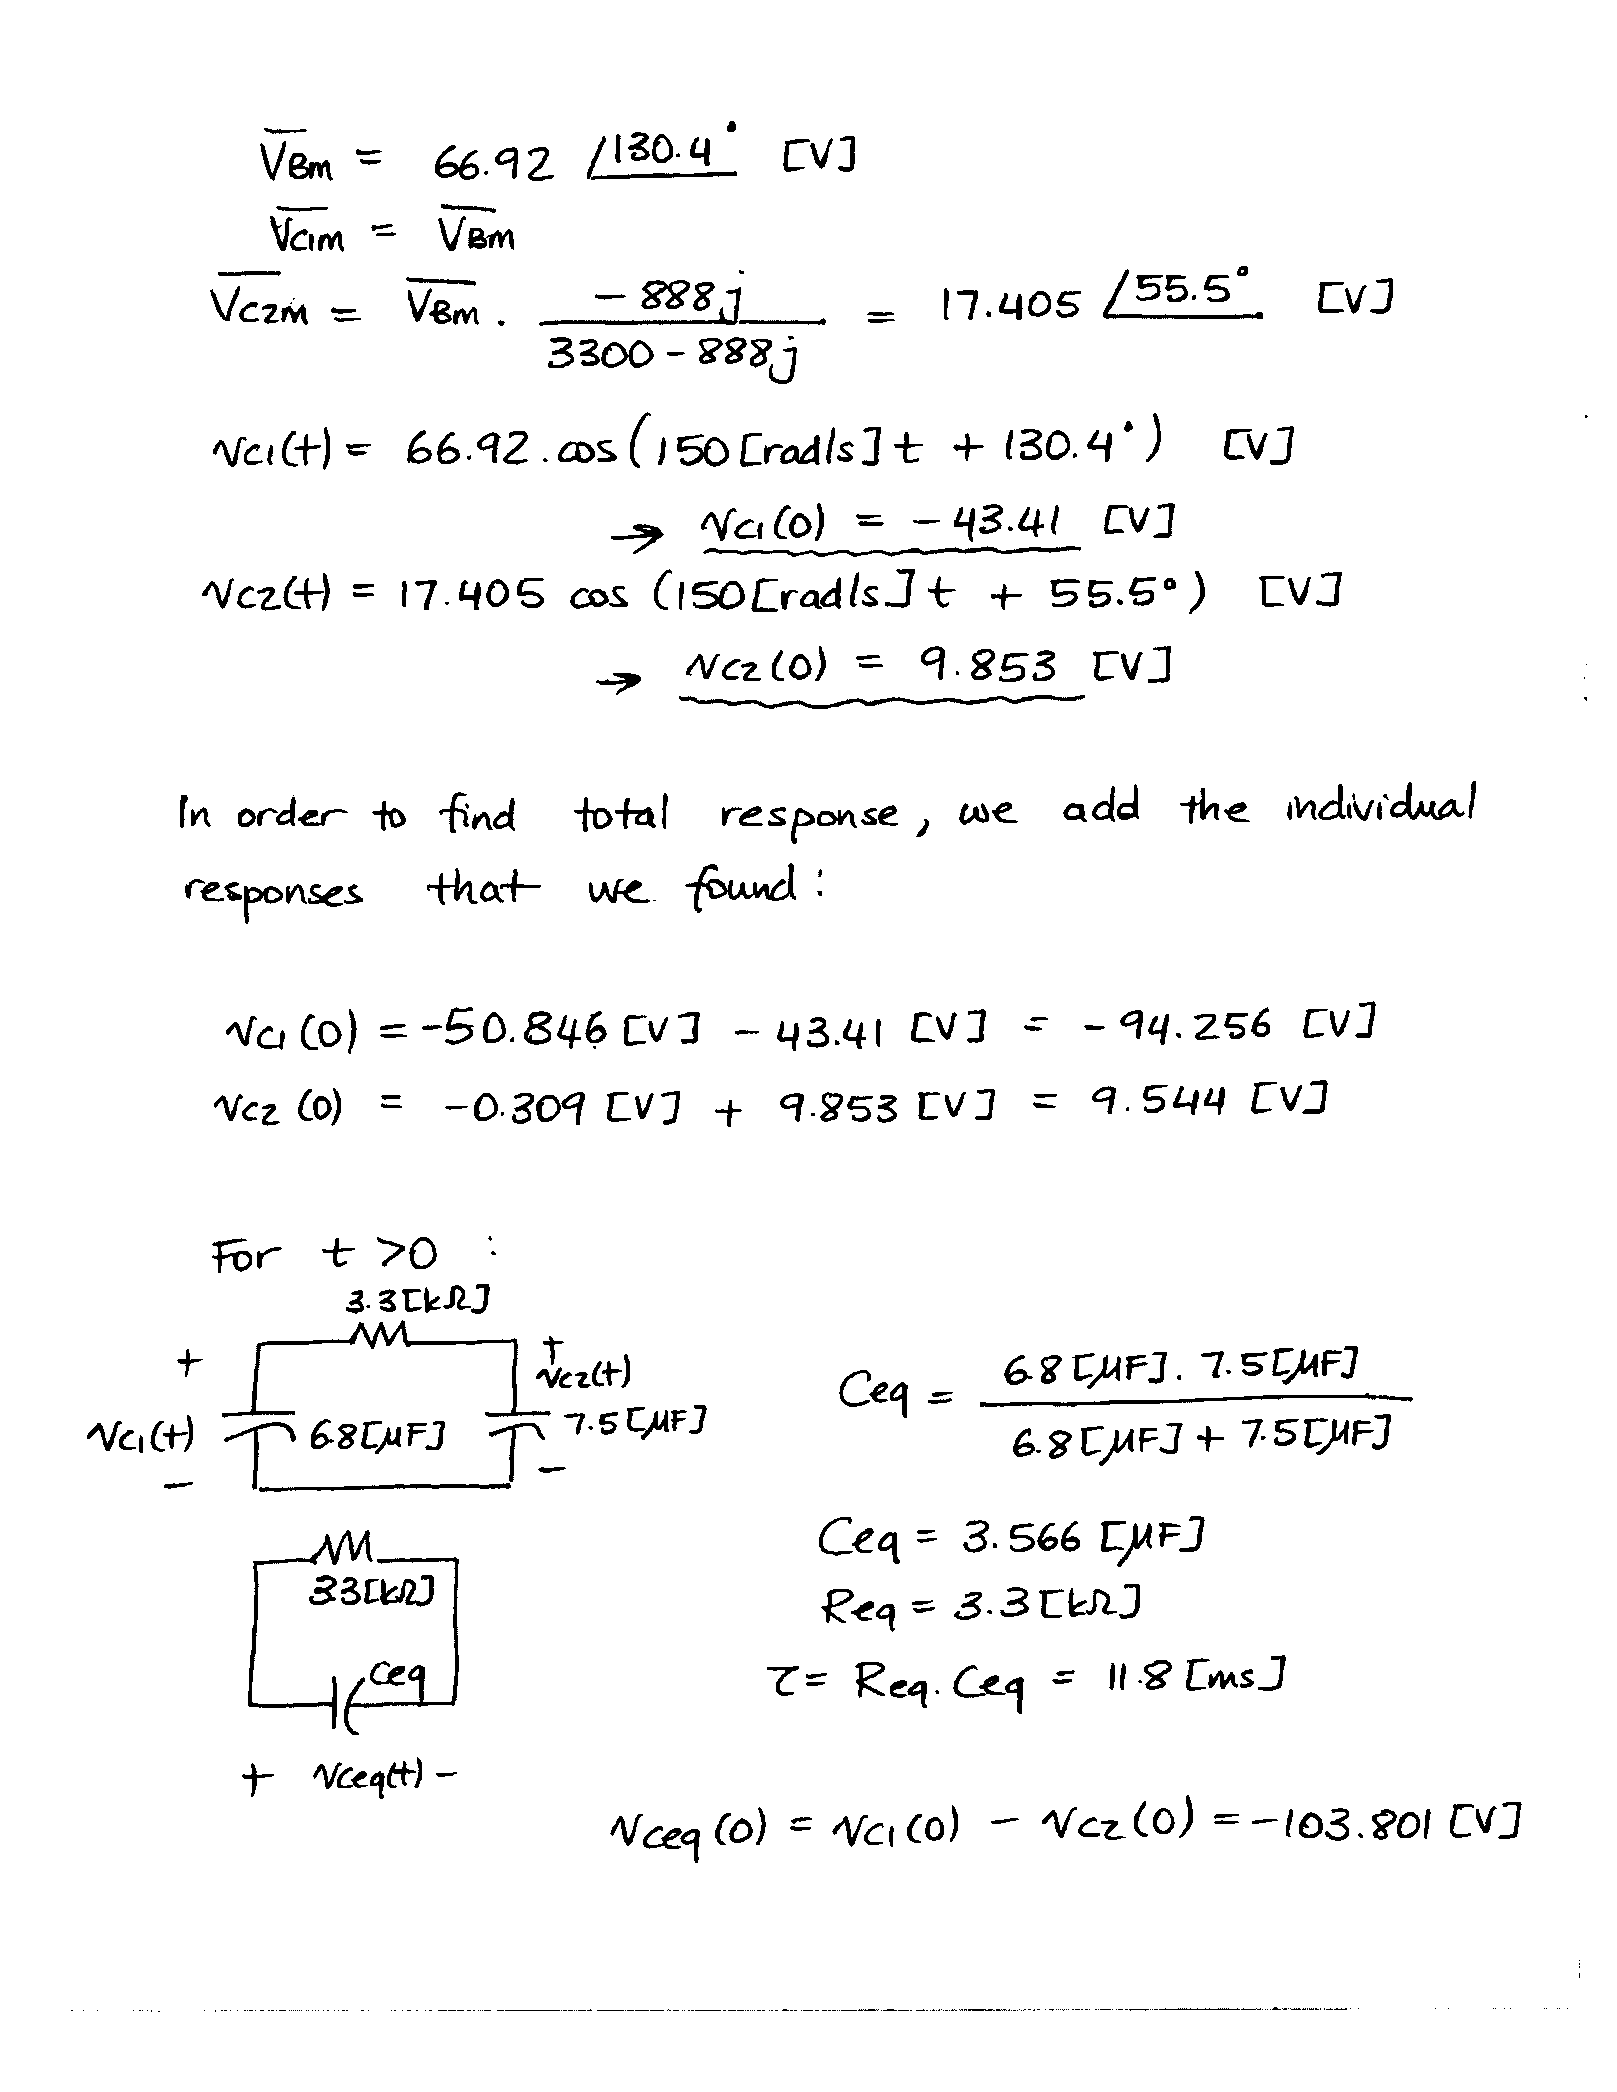 V̅Bm = 66.92 /130.4° [V]
V̅C1m = V̅Bm
V̅C2m = V̅Bm . -888j / (3300-888j) = 17.405 /55.5° [V]
vC1(t) = 66.92 . cos (150 [rad/s] t + 130.4°) [V]
→ vC1(0) = -43.41 [V]
vC2(t) = 17.405 cos (150 [rad/s] t + 55.5°) [V]
→ vC2(0) = 9.853 [V]
In order to find total response, we add the individual
responses that we found:
vC1(0) = -50.846 [V] - 43.41 [V] = -94.256 [V]
vC2(0) = -0.309 [V] + 9.853 [V] = 9.544 [V]
For t >0 :
3.3[kΩ]
+
vC1(t)
-
6.8[μF]
+
vC2(t)
7.5[μF]
-
Ceq = 6.8[μF] . 7.5[μF] / 6.8[μF] + 7.5[μF]
Ceq = 3.566 [μF]
Req = 3.3[kΩ]
τ = Req. Ceq = 11.8 [ms]
3.3[kΩ]
Ceq
+ vCeq(t) -
vCeq(0) = vC1(0) - vC2(0) = -103.801 [V]